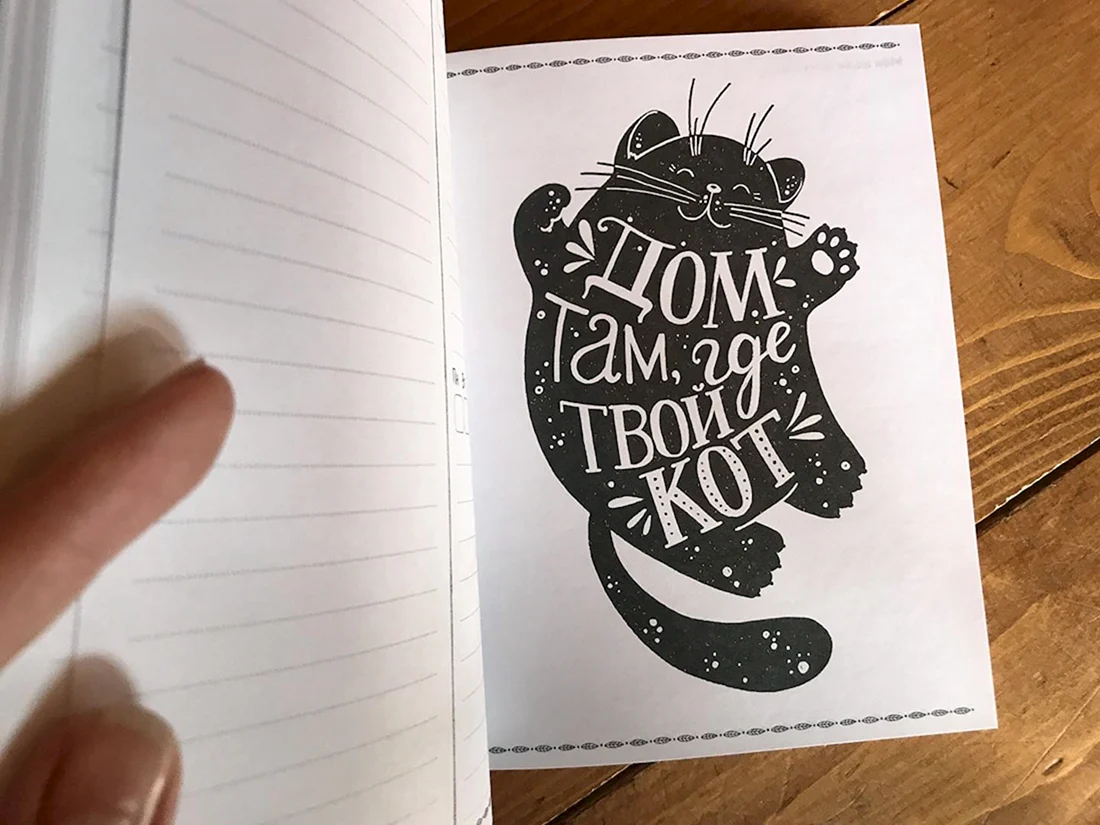 ДОМ
Там, где
ТВОЙ
КОТ
Пн